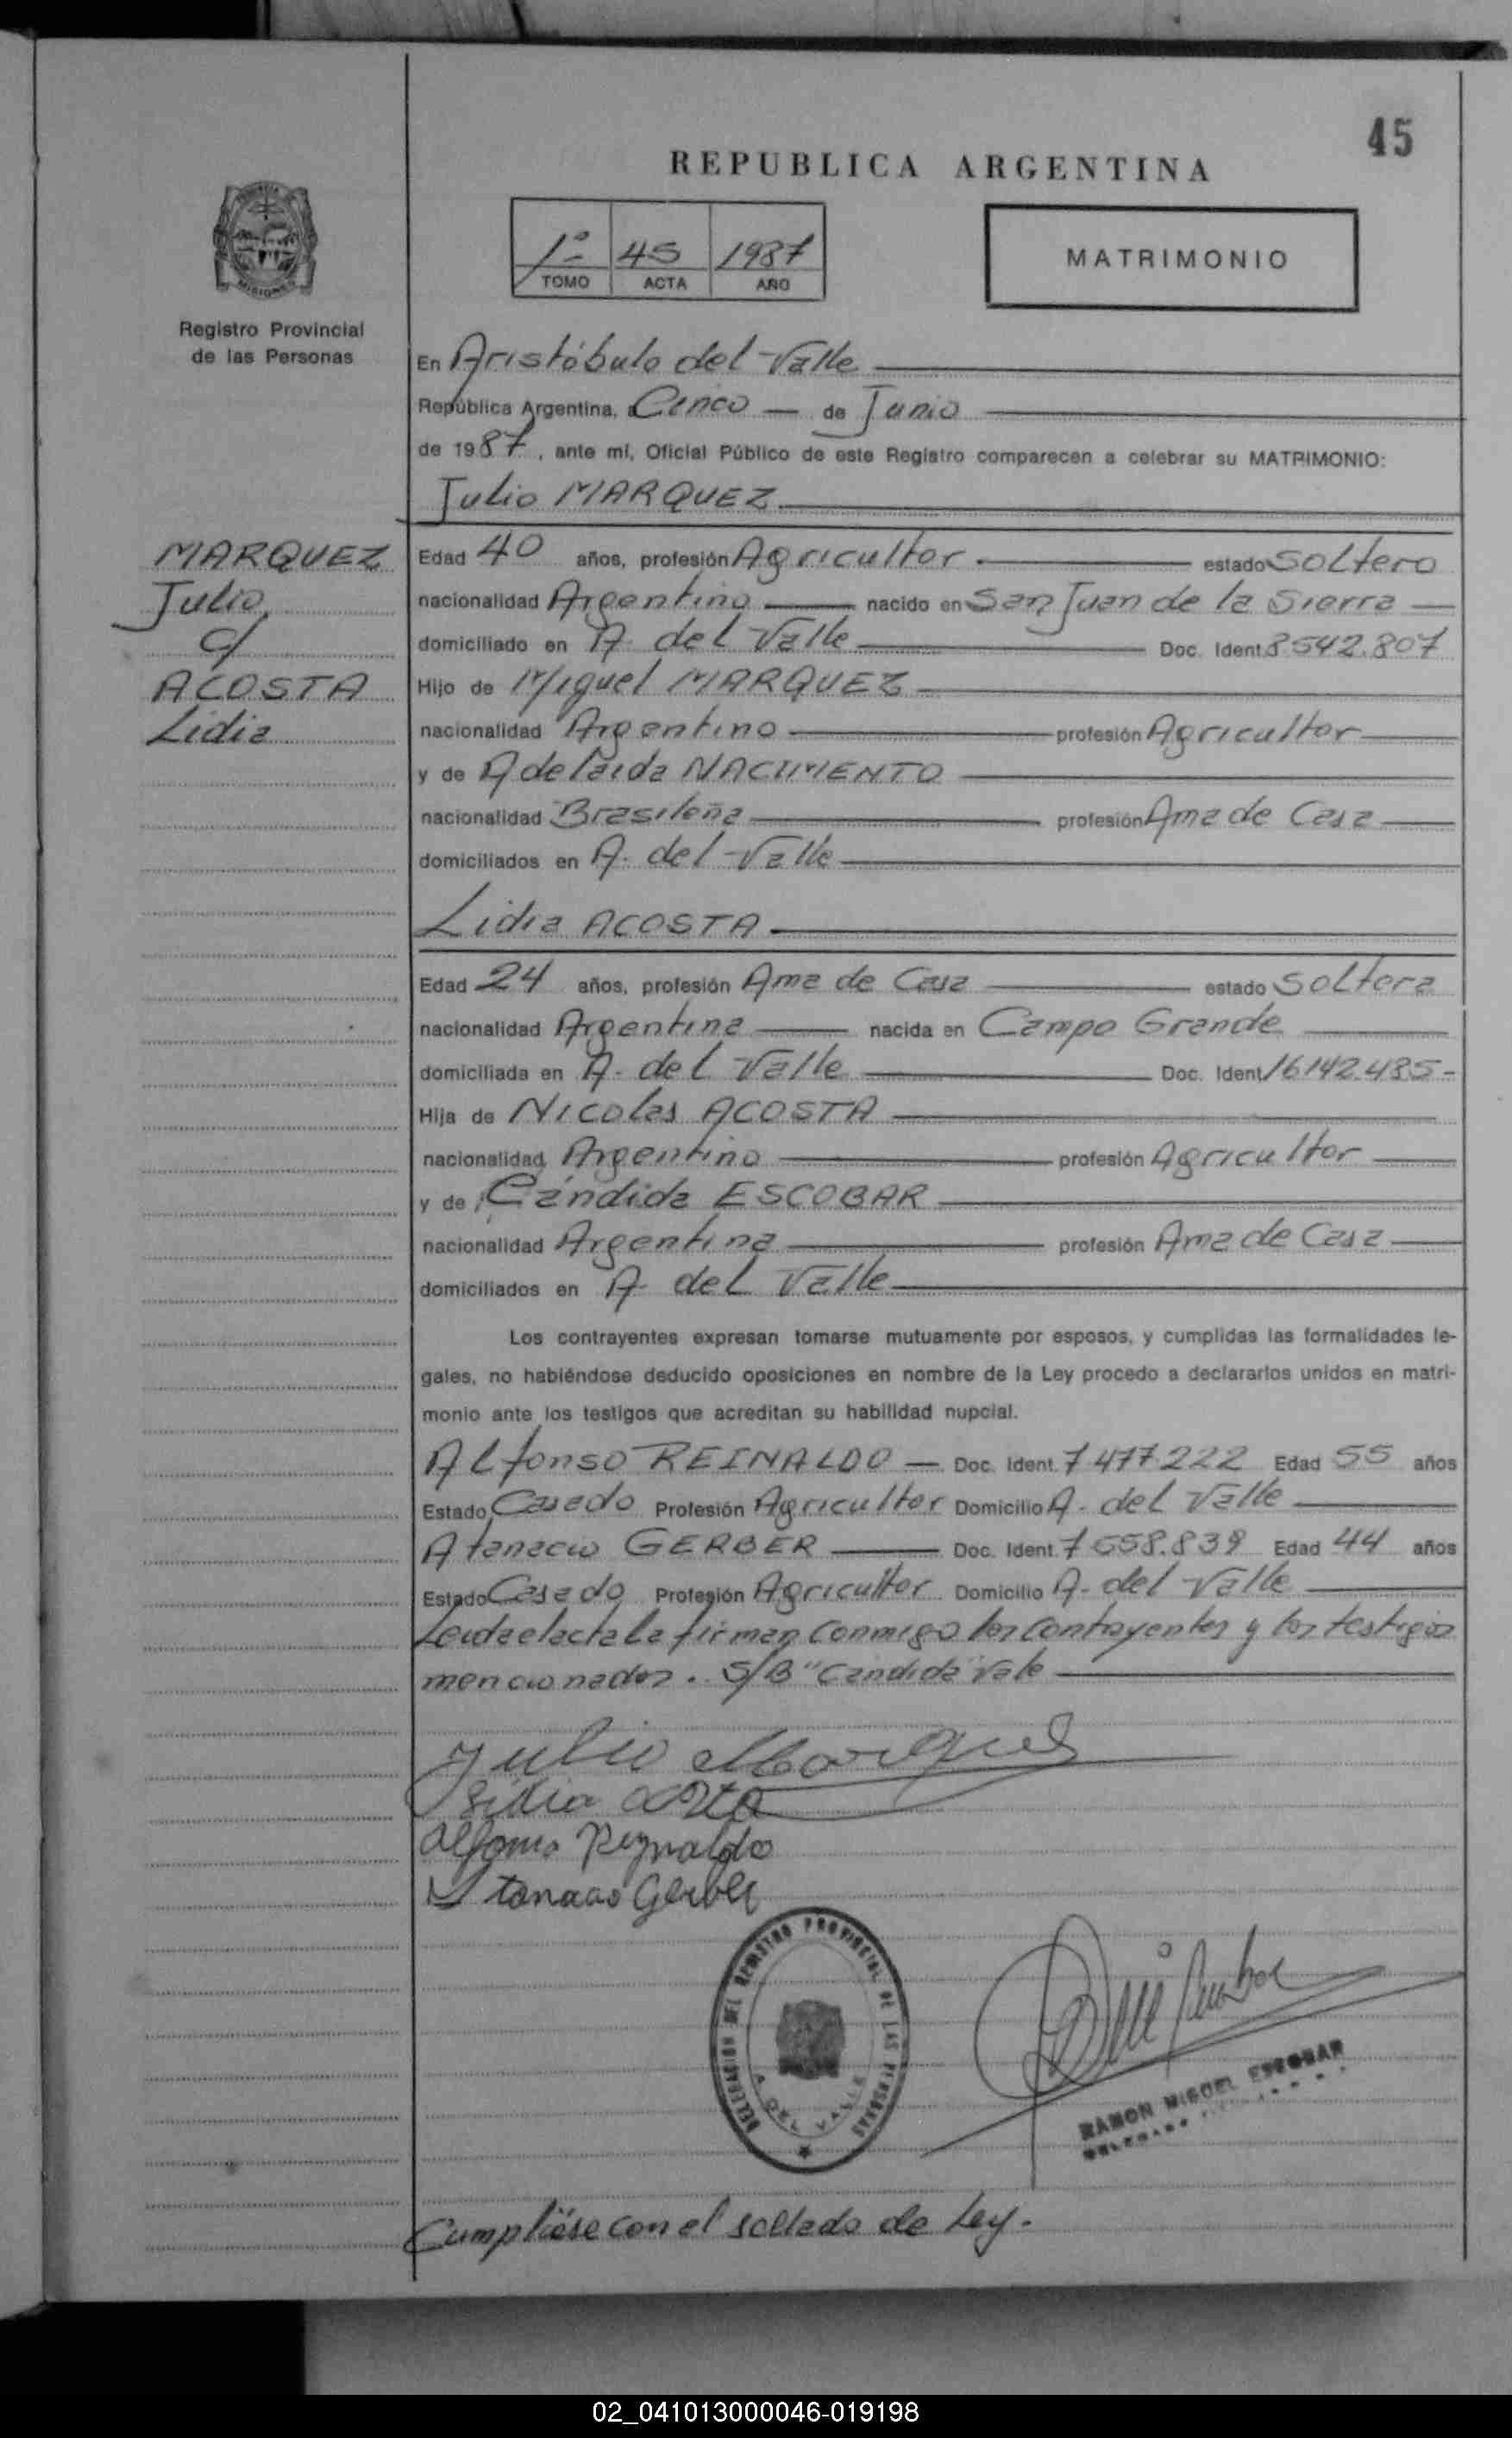 45
REPUBLICA ARGENTINA
1º 45 1987
TOMO ACTA AÑO
MATRIMONIO
MISIONES
Registro Provincial
de las Personas
En Aristóbulo del Valle
República Argentina, a Cinco de Junio
de 1987, ante mí, Oficial Público de este Registro comparecen a celebrar su MATRIMONIO:
Julio MARQUEZ
MARQUEZ
Julio
c/
ACOSTA
Lidia
Edad 40 años, profesión Agricultor estado Soltero
nacionalidad Argentino nacido en San Juan de la Sierra
domiciliado en A. del Valle Doc. Ident. 8542.807
Hijo de Miguel MARQUEZ
nacionalidad Argentino profesión Agricultor
y de Adelaida NACIMIENTO
nacionalidad Brasileña profesión Ama de Casa
domiciliados en A. del Valle
Lidia ACOSTA
Edad 24 años, profesión Ama de Casa estado Soltera
nacionalidad Argentina nacida en Campo Grande
domiciliada en A. del Valle Doc. Ident. 16142.485-
Hija de Nicolas ACOSTA
nacionalidad Argentino profesión Agricultor
y de Cándida ESCOBAR
nacionalidad Argentina profesión Ama de Casa
domiciliados en A. del Valle
Los contrayentes expresan tomarse mutuamente por esposos, y cumplidas las formalidades le-
gales, no habiéndose deducido oposiciones en nombre de la Ley procedo a declararlos unidos en matri-
monio ante los testigos que acreditan su habilidad nupcial.
Alfonso REINALDO Doc. Ident. 7477222 Edad 55 años
Estado Casado Profesión Agricultor Domicilio A. del Valle
Atanacio GERBER Doc. Ident. 7658.839 Edad 44 años
Estado Casado Profesión Agricultor Domicilio A. del Valle
Leida el acta la firman conmigo los contrayentes y los testigos
mencionados. S/B "Candida" Vale
Julio Marques
Lidia acosta
alfonso Reynaldo
Atanacio Gerber
DELEGACION DEL REGISTRO PROVINCIAL DE LAS PERSONAS
A. DEL VALLE
RAMON MIGUEL ESCOBAR
DELEGADO
Cumplióse con el sellado de Ley.
02_041013000046-019198